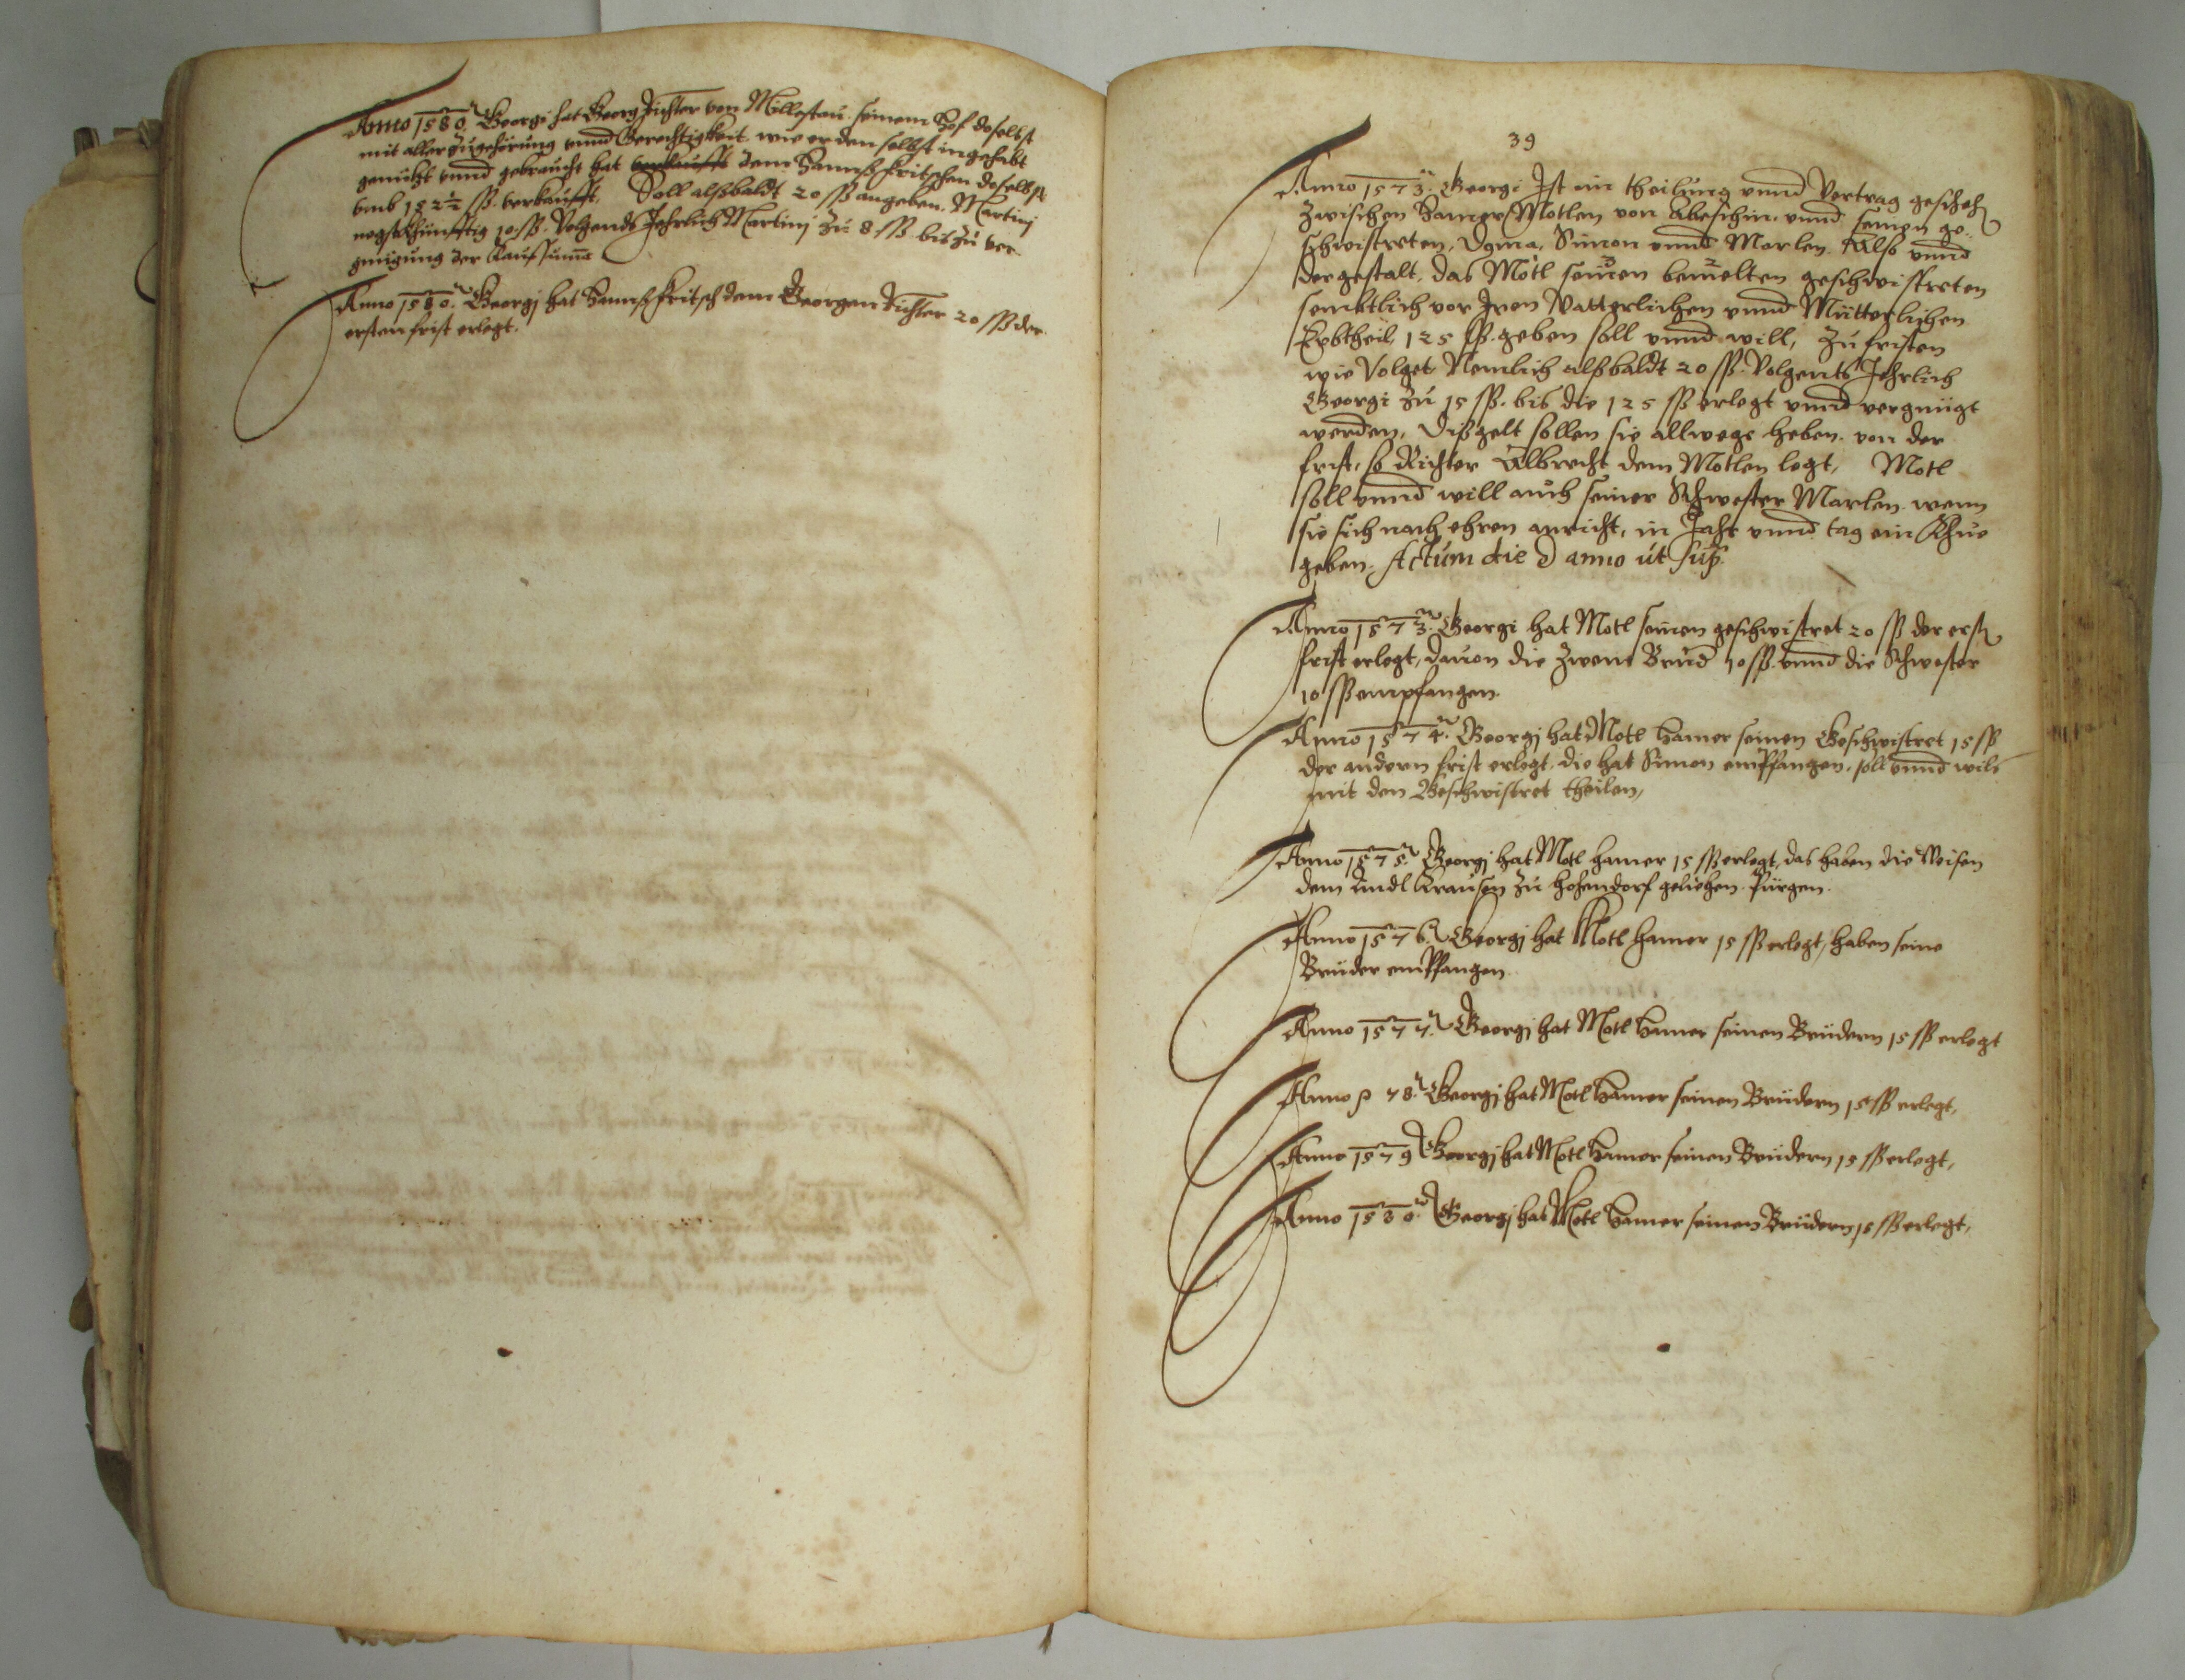 Anno 1580 Georgi hat Georg Richter von Millestau seinem Hof doselbst
mit aller Zugehörung vnnd Gerechtigkeit wie er den selbst ingehabt
genützt vnnd gebraucht hat verkaufft dem Hannß fritschen doselbst
vmb 152½ ss verkaufft. Soll alßbaldt 20 ss angeben. Martinj
negstkhünfftig 10 ss. Volgends Jehrlich Martinj zu 8 ss bis zu ver
gnügung der Kaufsuma
Anno 1580. Georgj hat Hannß fritsch dem Georgen Richter 20 ss der
ersten frist erlegt.
39
Anno 1573. Georgi Ist ein theilung vnnd Vertrag gescheh
zwischen Hamer Motlen von vnnd seinen ge
schwistreten, Simon vnnd Marlen. Also vnnd
dergestalt, das Motl seinen bemelten geschwistreten
semtlich vor Iren Vatterlichen vnnd Mütterlichen
Erbtheil, 125 ss. geben soll vnnd will, zu fristen
wie Volget Nemlich alßbaldt 20 ss. Volgents Jehrlich
Georgi zu 15 ss. bis die 125 ss erlegt vnnd vergnügt
werden, Dißgelt sollen sie allwege heben von der
frist, so Richter Albrecht dem Motlen legt, Motl
soll vnnd will auch seiner Schwester Marlen wenn
sie sich nach ehren anricht, in Jahr vnnd tag ein Khue
geben. Actum die anno ut sup.
Anno 1573. Georgi hat Motl seinen geschwistret 20 ss der erst
frist erlegt, dauon die zwene Brüd 10 ss. vnnd die Schwester
10 ss empfangen.
Anno 1574. Georgj hat Motl Hamer seinen Geschwistret 15 ss
der andern frist erlegt, die hat Simon empfangen, soll vnnd will
mit den Geschwistret theilen,
Anno 1575. Georgj hat Motl hamer 15 ss erlegt, das haben die Weisen
dem Kraußen zu hohendorf geliehen. Pürgen.
Anno 1576. Georgj hat Motl hamer 15 ss erlegt, haben seine
Brüder empfangen.
Anno 1577. Georgj hat Motl Hamer seinen Brüdern 15 ss erlegt
Anno 78. Georgj hat Motl Hamer seinen Brüdern 15 ss erlegt,
Anno 1579 Georgj hat Motl Hamer seinen Brüdern 15 ss erlegt,
Anno 1580. Georgj hat Motl Hamer seinen Brüdern 15 ss erlegt,